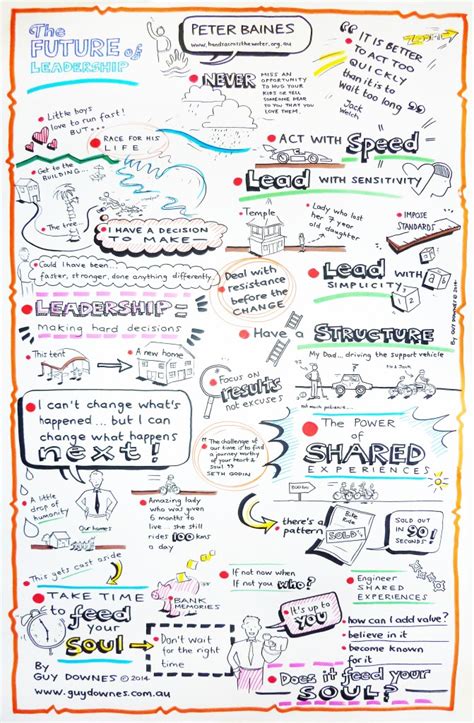 The
FUTURE of
LEADERSHIP
PETER BAINES
www.handsacrossthewater.org.au
NEVER
MISS AN
OPPORTUNITY
TO HUG YOUR
KIDS OR TELL
SOMEONE DEAR
TO YOU THAT YOU
LOVE THEM.
"IT IS BETTER
TO ACT TOO
QUICKLY
than it is to
wait too long"
Jack
Welch
Little boys
love to run fast!
BUT...
RACE FOR HIS
LIFE
ACT WITH Speed
Lead WITH SENSITIVITY
Get to the
BUILDING...
The tree
I HAVE A DECISION
TO MAKE
Temple
Lady who lost
her 7 year
old daughter
IMPOSE
STANDARDS
Could I have been
faster, stronger, done anything differently
Deal with
resistance
before the
CHANGE
Lead WITH
SIMPLICITY
a b
1 2
LEADERSHIP =
making hard decisions
Have a STRUCTURE
BY GUY DOWNES © 2014
This tent
A new home
My Dad... driving the support vehicle
FOCUS ON
results
not excuses
I can't change what's
happened... but I can
change what happens
next!
"The challenge of
our time is to find
a journey worthy
of your heart &
soul"
SETH GODIN
The POWER
OF
SHARED
EXPERIENCES
A little
drop of
humanity
Our homes
Amazing lady
who was given
6 months to
live... she still
rides 100 kms
a day
there's a
pattern
Bike
Ride
SOLD!
SOLD OUT
IN 90
SECONDS!
This gets cast aside
BANK
MEMORIES
If not now when
If not you who?
Engineer
SHARED
EXPERIENCES
TAKE TIME
to feed
your
SOUL
Don't wait
for the right
time
It's up to
YOU
how can I add value?
believe in it
become known
for it
Does it feed your
SOUL?
BY
GUY DOWNES © 2014
www.guydownes.com.au